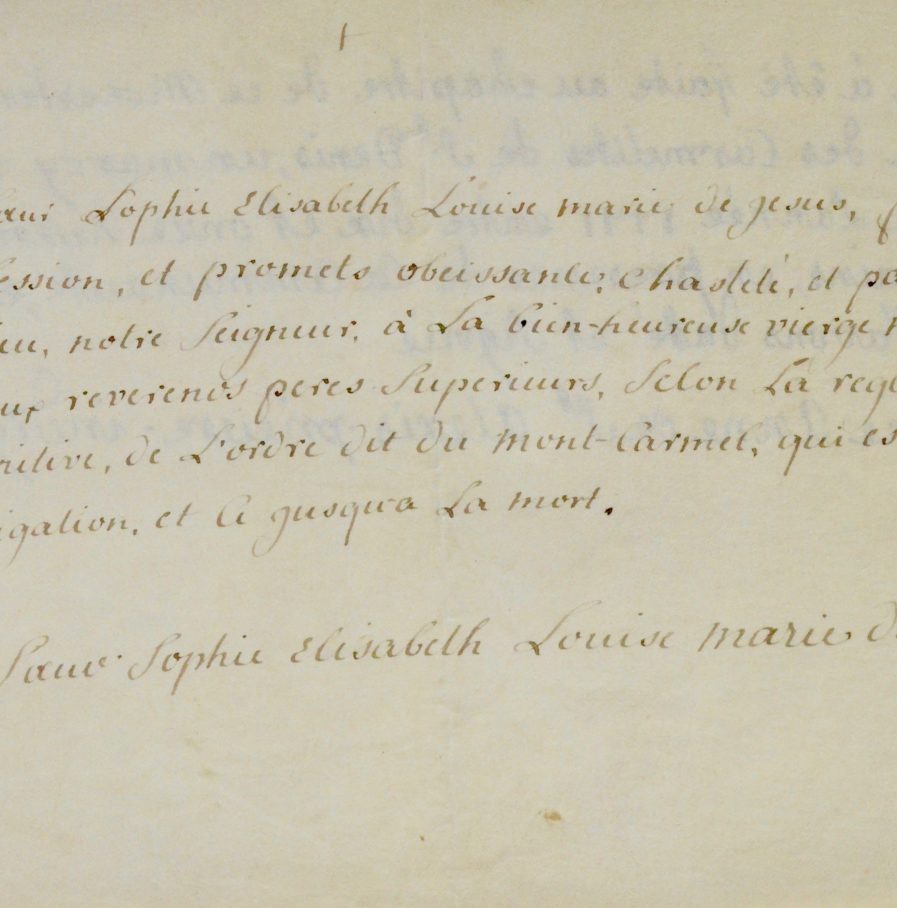 œur Sophie Elisabeth Louise marie de jesus, f
ession, et promets obeissance, Chasteté, et pa
eu, notre Seigneur, à La bien-heureuse vierge
aux reverends peres Superieurs, Selon La regl
mitive, de L'ordre dit du mont-Carmel, qui es
igation, et Ce jusqu'a La mort.
Sœur Sophie Elisabeth Louise marie d